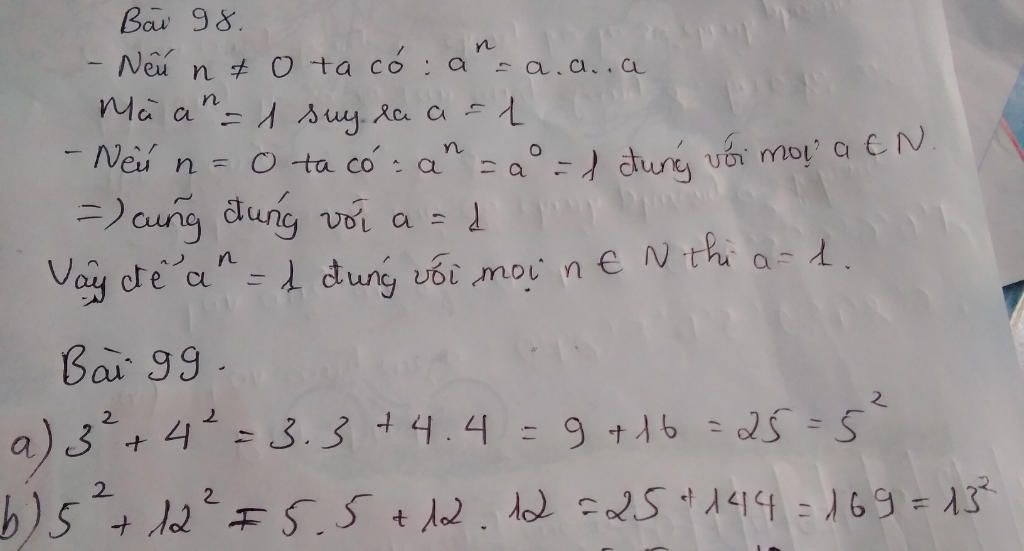 Bài 98.
- Nếu n ≠ 0 ta có : aⁿ = a.a..a
Mà aⁿ = 1 suy ra a = 1
- Nếu n = 0 ta có : aⁿ = a⁰ = 1 đúng với mọi a ∈ N.
=) cũng đúng với a = 1
Vậy để aⁿ = 1 đúng với mọi n ∈ N thì a = 1.
Bài 99.
a) 3² + 4² = 3.3 + 4.4 = 9 + 16 = 25 = 5²
b) 5² + 12² = 5.5 + 12.12 = 25 + 144 = 169 = 13²